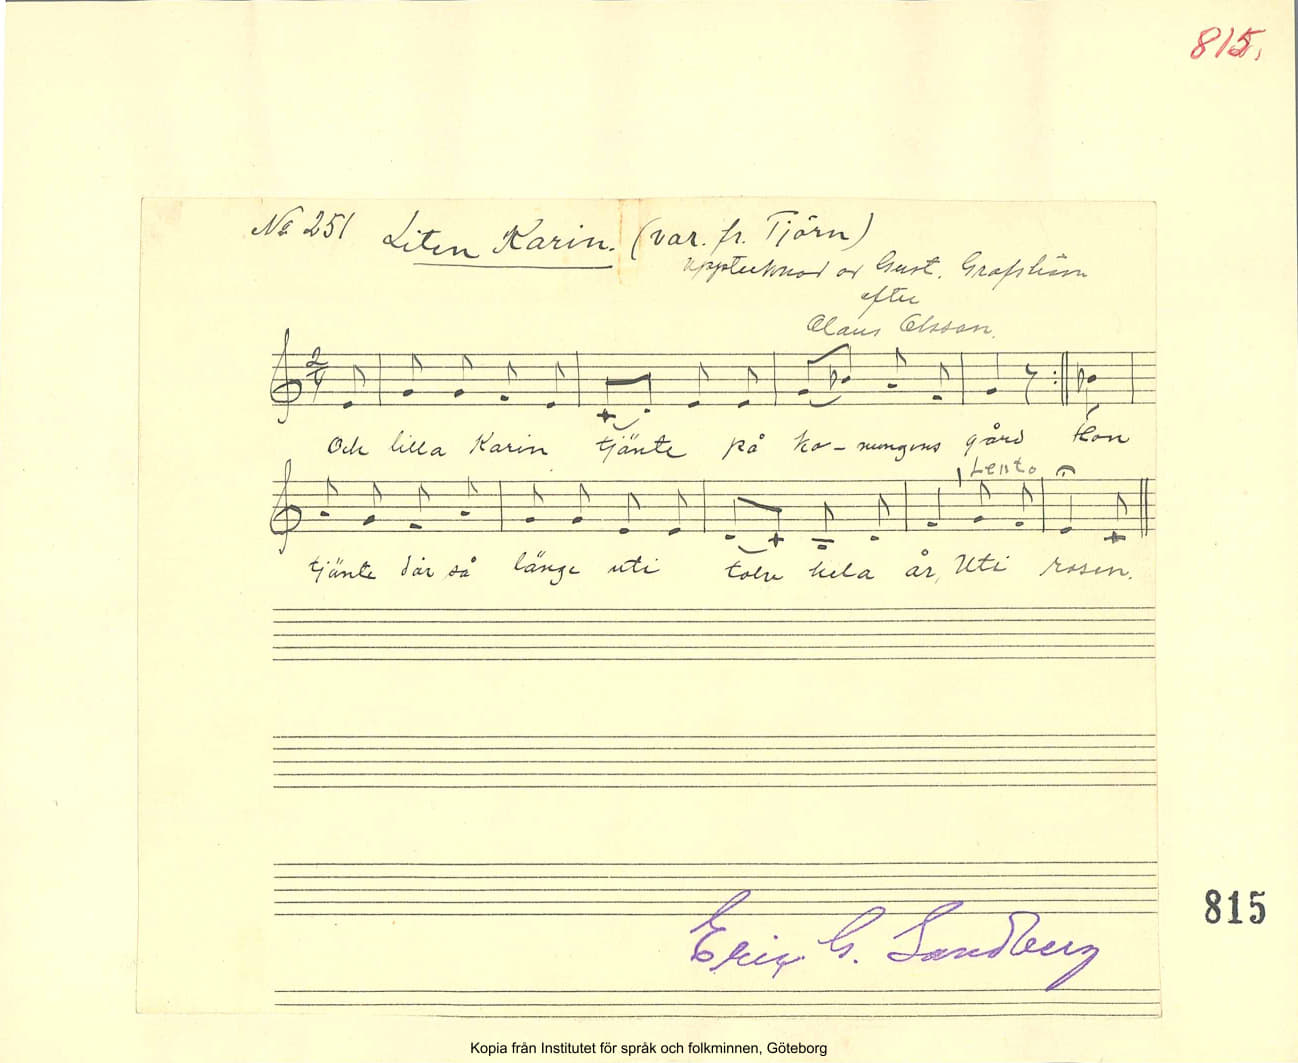 815.
No 251 Liten Karin. (var. fr. Tjörn)
upptecknad av Gust.
efter
Olaus Olsson.
2/4
Och lilla Karin tjänte på ko-nungens gård Hon
Lento
tjänte där så länge uti tolv hela år, Uti rosen.
815
Eric G. Sandberg
Kopia från Institutet för språk och folkminnen, Göteborg